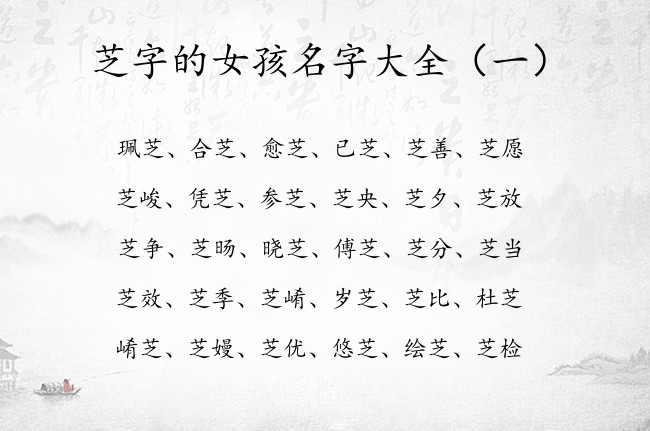 芝字的女孩名字大全（一）
珮芝、合芝、愈芝、已芝、芝善、芝愿
芝峻、凭芝、参芝、芝央、芝夕、芝放
芝争、芝旸、晓芝、傅芝、芝分、芝当
芝效、芝季、芝崤、岁芝、芝比、杜芝
崤芝、芝嫚、芝优、悠芝、绘芝、芝检